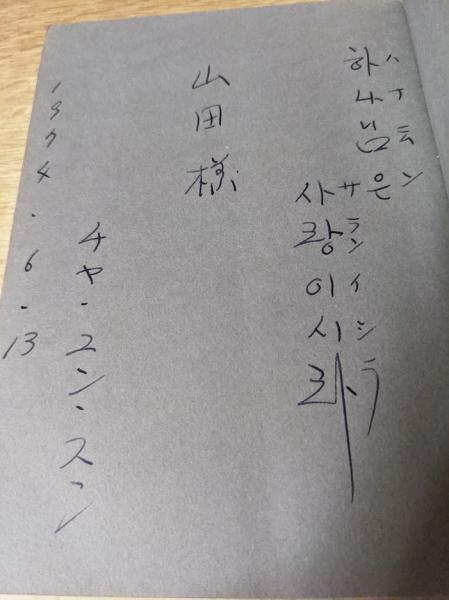 하나님은
ハナニムン
사랑이시라
サランイシラ
山田様
チヤ・ユン・スン
1974.6.13